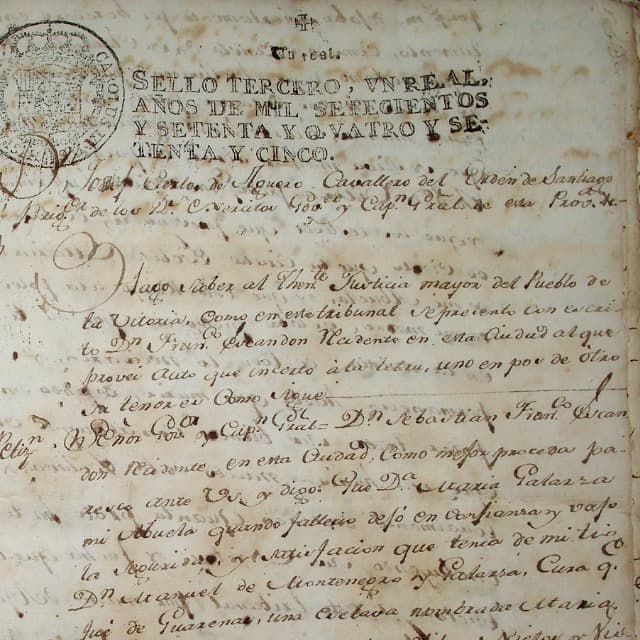 Un real.
SELLO TERCERO, VN REAL,
AÑOS DE MIL SETECIENTOS
Y SETENTA Y QVATRO Y SE-
TENTA Y CINCO.
Josef Carlos de Aguero, Cavallero del Orden de Santiago
Brigr de los Rs Exercitos Govor y Capn Gral de esta Prova de
Hago saver al Thente Justicia mayor del Pueblo de
la Vitoria, Como en este tribunal se presento con escri-
to Dn Franco Escandon Recidente en esta Ciudad al que
provei Auto que incerto à la letra, uno en pos de otro
Su tenor es Como Sigue
Petizn Señor Govor y Capn Gral = Dn Sebastian Franco Escan
don Recidente en esta Ciudad, Como mejor proceda pa-
resco ante VS y digo: Que Da Maria Galarza
mi Abuela quando fallecio dejó en Confianza y vajo
la Seguridad y Satisfacion que tenia de mi tio
Dn Manuel de Montenegro y Galarsa, Cura q.
fué de Guarenas, una esclava nombrada Maria